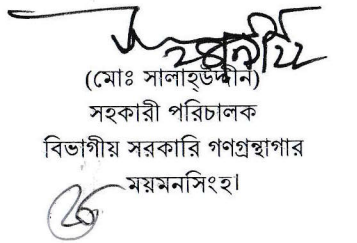 (মোঃ সালাহ্‌উদ্দীন)
সহকারী পরিচালক
বিভাগীয় সরকারি গণগ্রন্থাগার
ময়মনসিংহ।